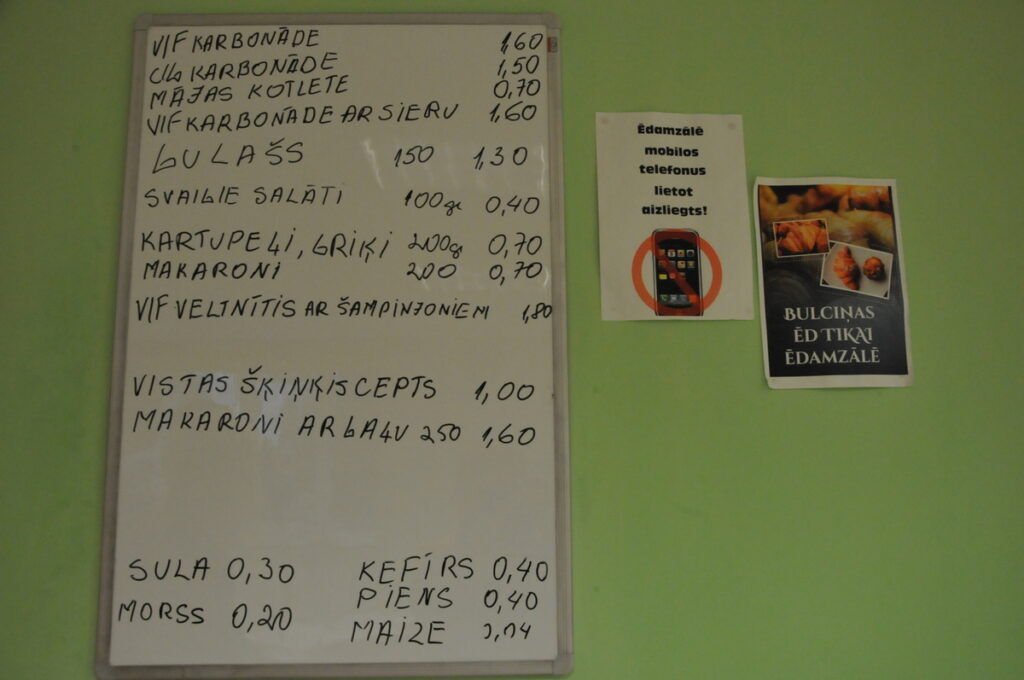 V/F KARBONĀDE 1,60
C/G KARBONĀDE 1,50
MĀJAS KOTLETE 0,70
V/F KARBONĀDE AR SIERU 1,60
GULAŠS 150 1,30
SVAIGIE SALĀTI 100gr 0,40
KARTUPEĻI, GRIĶI 200g 0,70
MAKARONI 200 0,70
V/F VELTNĪTIS AR ŠAMPINJONIEM 1,80
VISTAS ŠĶIŅĶIS CEPTS 1,00
MAKARONI AR GAĻU 250 1,60
SULA 0,30
MORSS 0,20
ĶEFĪRS 0,40
PIENS 0,40
MAIZE
Ēdamzālē
mobilos
telefonus
lietot
aizliegts!
BULCIŅAS
ĒD TIKAI
ĒDAMZĀLĒ